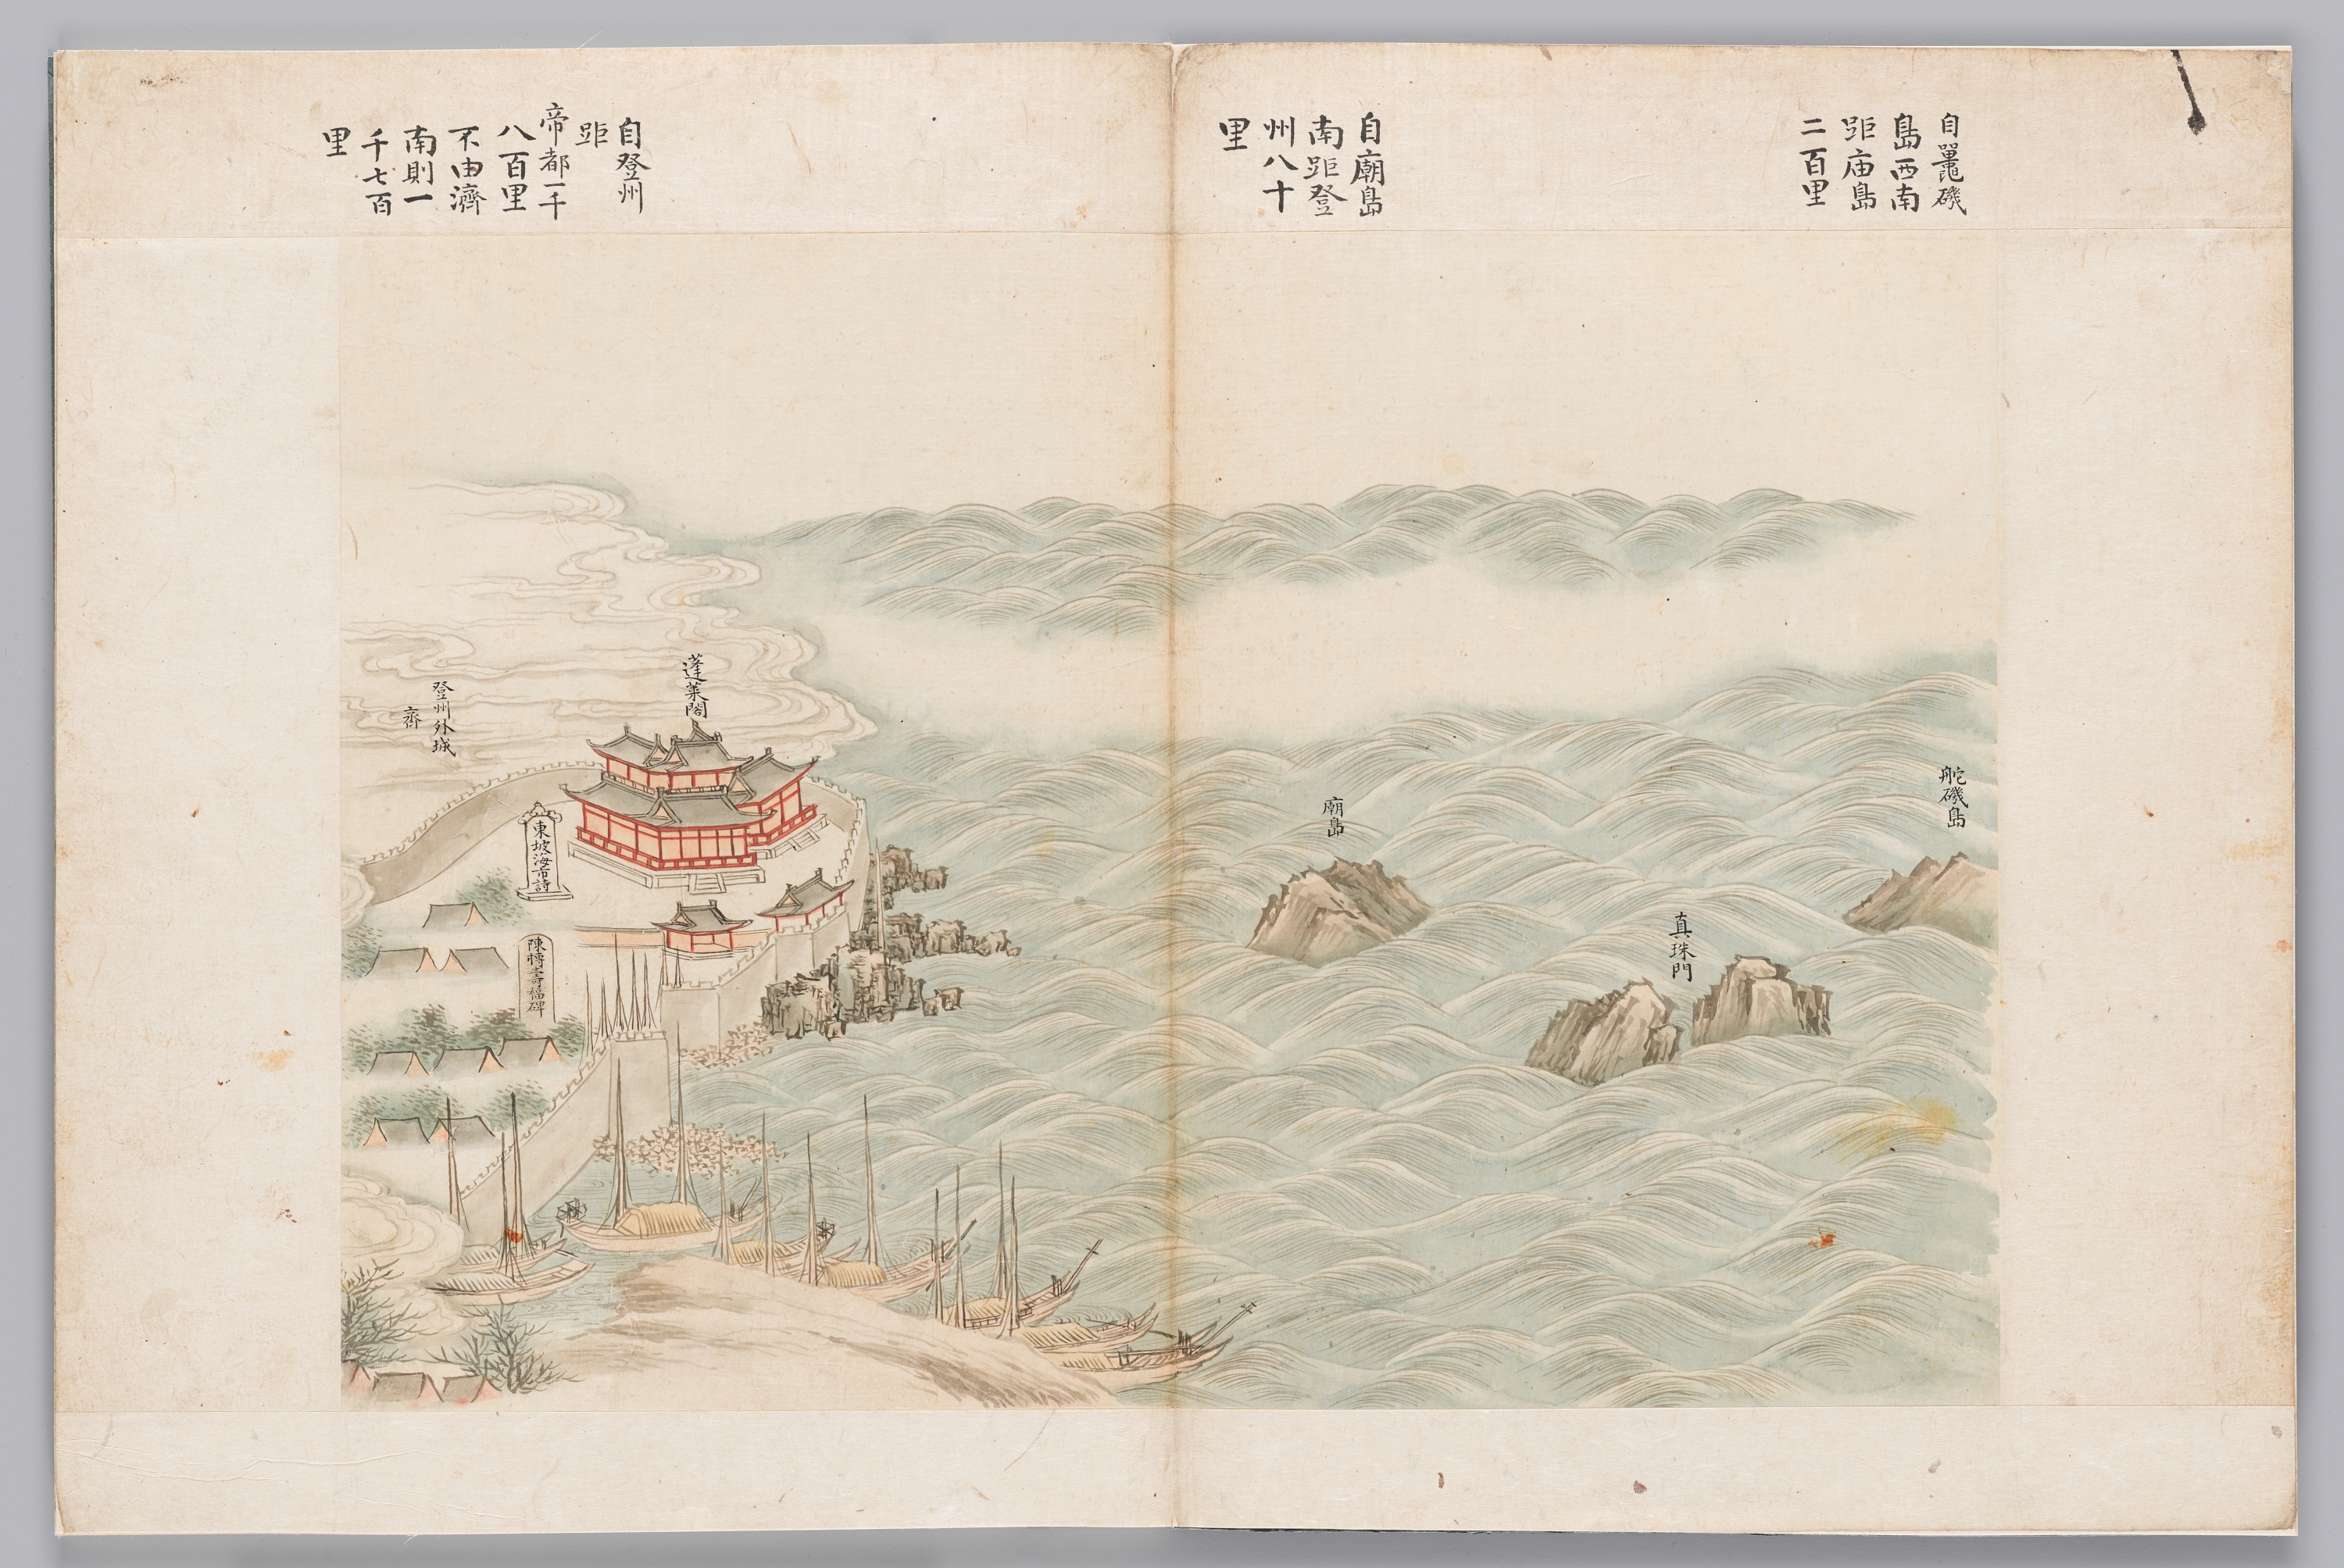 自鼉磯
島西南
距庙島
二百里
自廟島
南距登
州八十
里
自登州
距
帝都一千
八百里
不由濟
南則一
千七百
里
舵磯島
真珠門
廟島
蓬萊閣
東坡海市詩
陳摶壽福碑
登州外城
齊